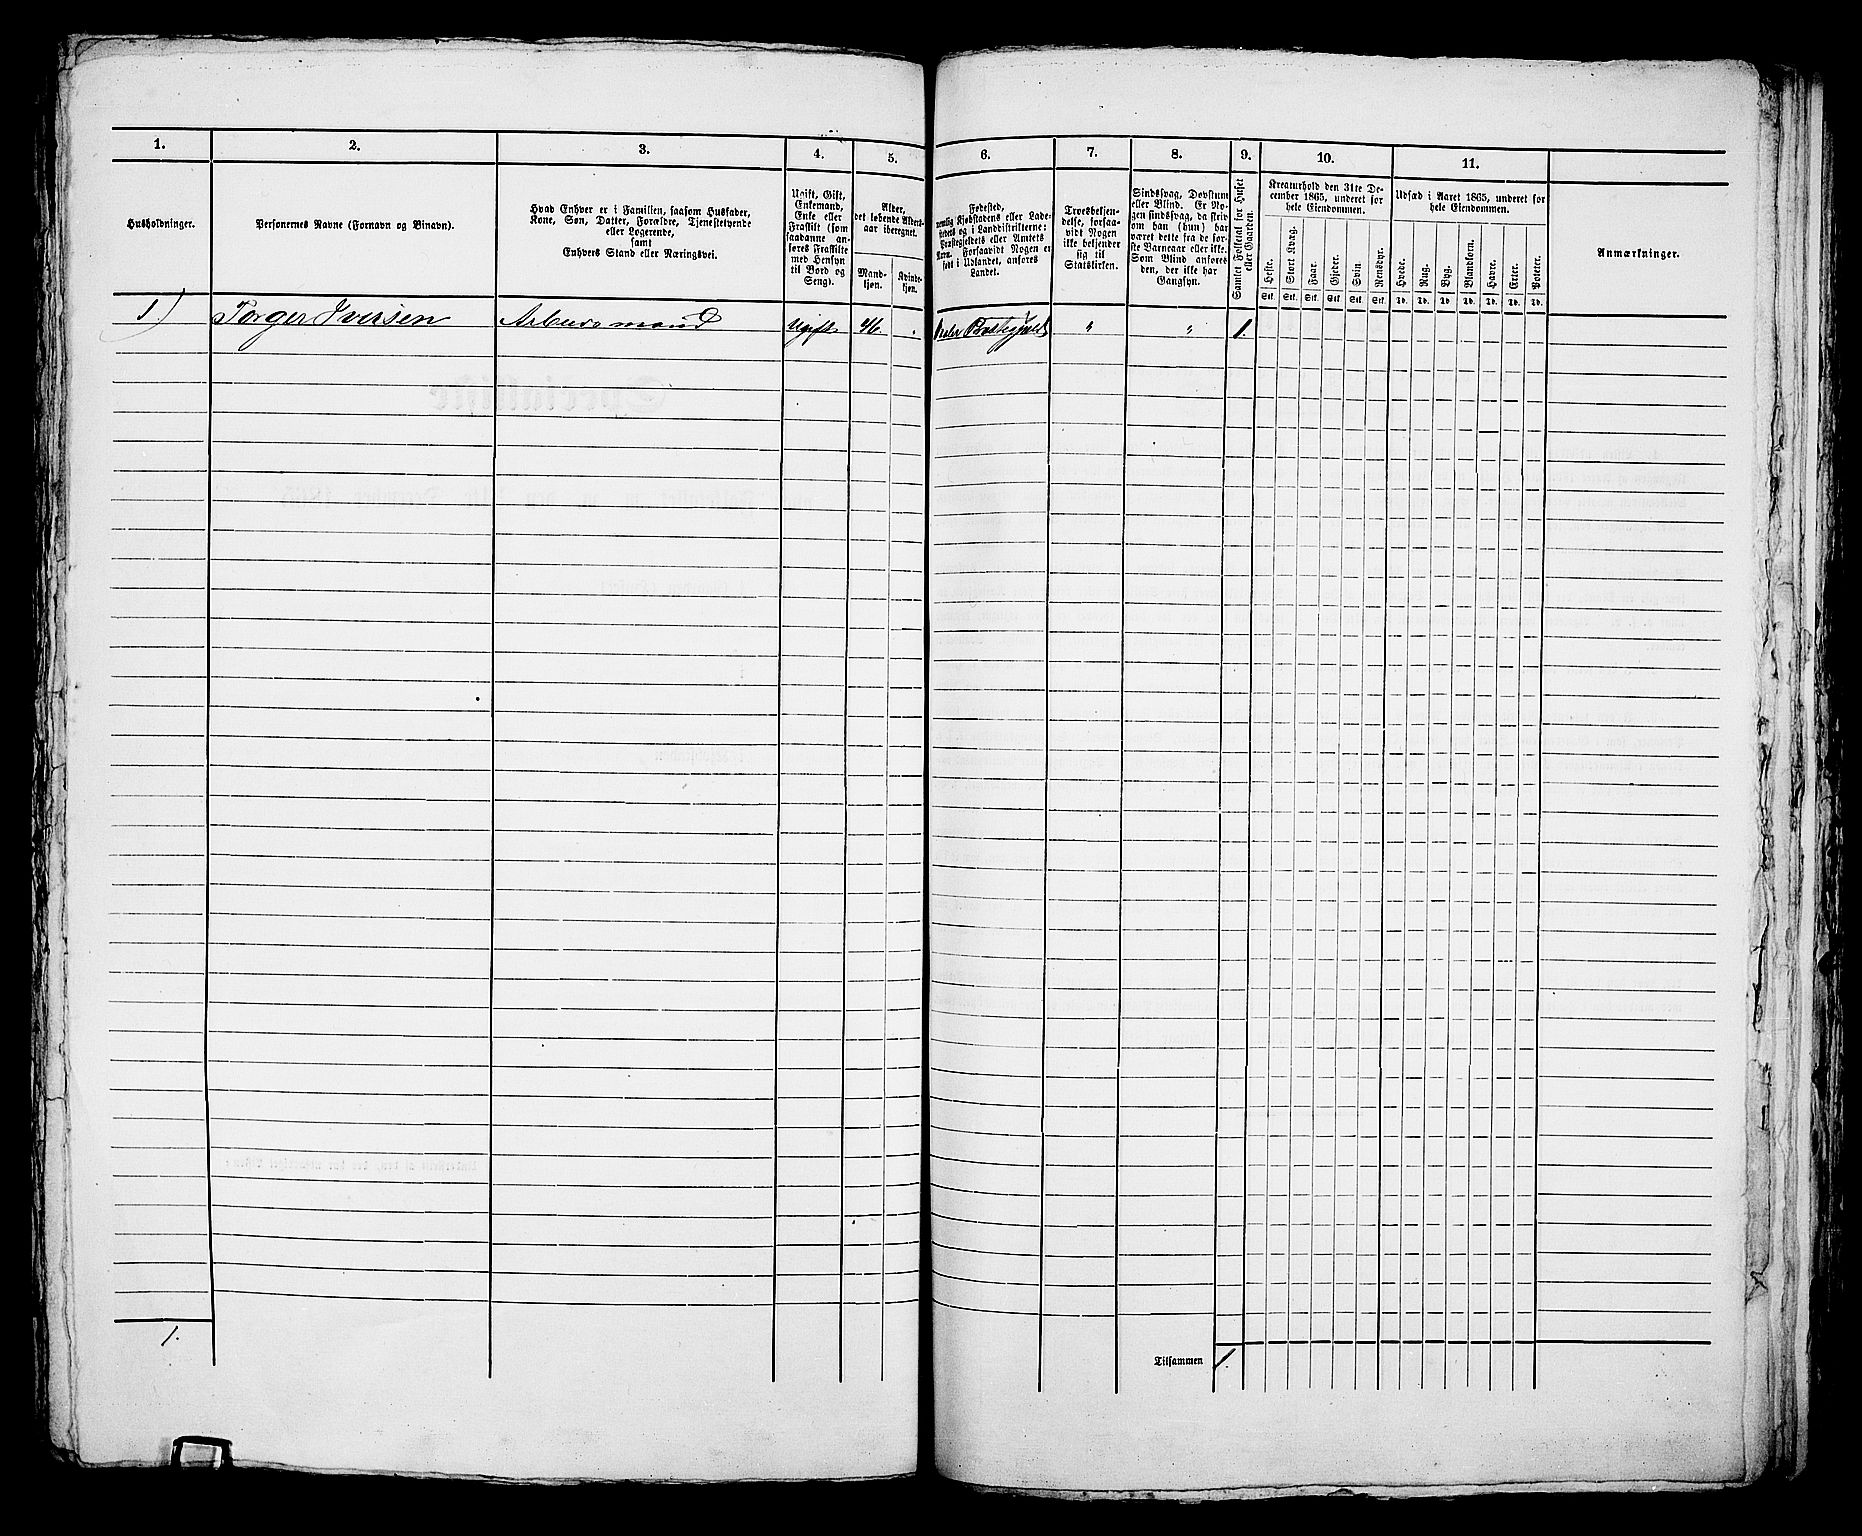 1. 2. 3. 4. 5. 6. 7. 8. 9. 10. 11.
Husholdninger.
Personernes Navne (Fornavn og Binavn).
Hvad Enhver er i Familien, saasom Husfader,
Kone, Søn, Datter, Forældre, Tjenestetyende
eller Logerende,
samt
Enhvers Stand eller Næringsvei.
Ugift, Gift,
Enkemand,
Enke eller
Fraskilt (som
saadanne an-
føres Fraskilte
med Hensyn
til Bord og
Seng).
Alder,
det løbende Alders-
aar iberegnet.
Mand-
kjøn.
Kvinde-
kjøn.
Fødested,
nemlig Kjøbstadens eller Lade-
stedets og i Landdistrikterne:
Præstegjeldets eller Amtets
Navn. Forsaavidt Nogen er
født i Udlandet, anføres
Landet.
Troesbekjen-
delse, forsaa-
vidt Nogen
ikke bekjender
sig til
Statskirken.
Sindssvag, Døvstum
eller Blind. Er No-
gen sindssvag, da skriv
om han (hun) har
været dette fra de før-
ste Barneaar eller ikke.
Som Blind anføres
den, der ikke har
Gangsyn.
Samlet Folketal for Huset
eller Gaarden.
Kreaturhold den 31te De-
cember 1865, underet for
hele Eiendommen.
Heste. Stort Kvæg. Faar. Gjeder. Svin. Rensdyr.
Stk. Stk. Stk. Stk. Stk. Stk.
Udsæd i Aaret 1865, underet for
hele Eiendommen.
Hvede. Rug. Byg. Blandkorn. Havre. Erter. Poteter.
Td. Td. Td. Td. Td. Td. Td.
Anmærkninger.
1.) Torger Iversen Arbeidsmand Ugift 46. " Præstegjeld " " 1.
1.
Tilsammen 1.